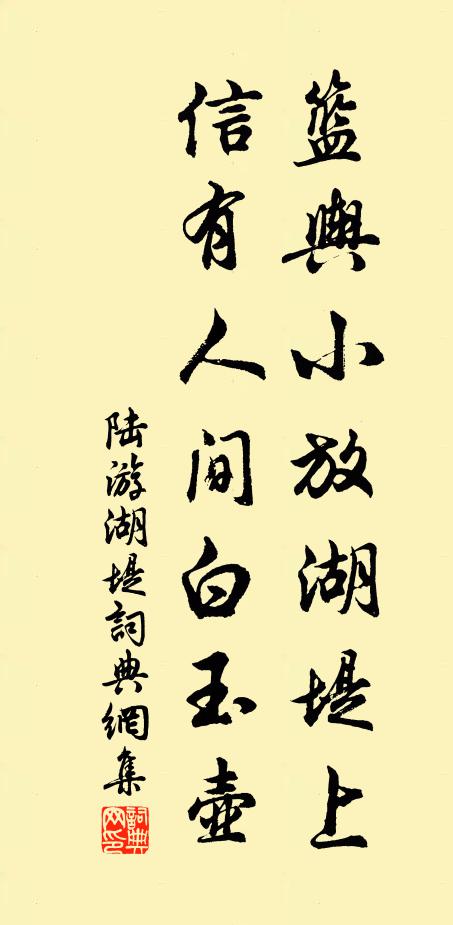 籃輿小放湖堤上
信有人間白玉壺
陆游湖堤詞典網集
詞典
网印